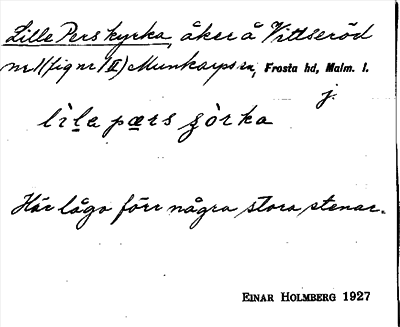 Lille Pers kyrka, åker å Vittseröd
nr 1 (fig nr II) Munkarps sn, Frosta hd, Malm. l.
j.
lìla pærs ʂòrka
Här lågo förr några stora stenar.
EINAR HOLMBERG 1927